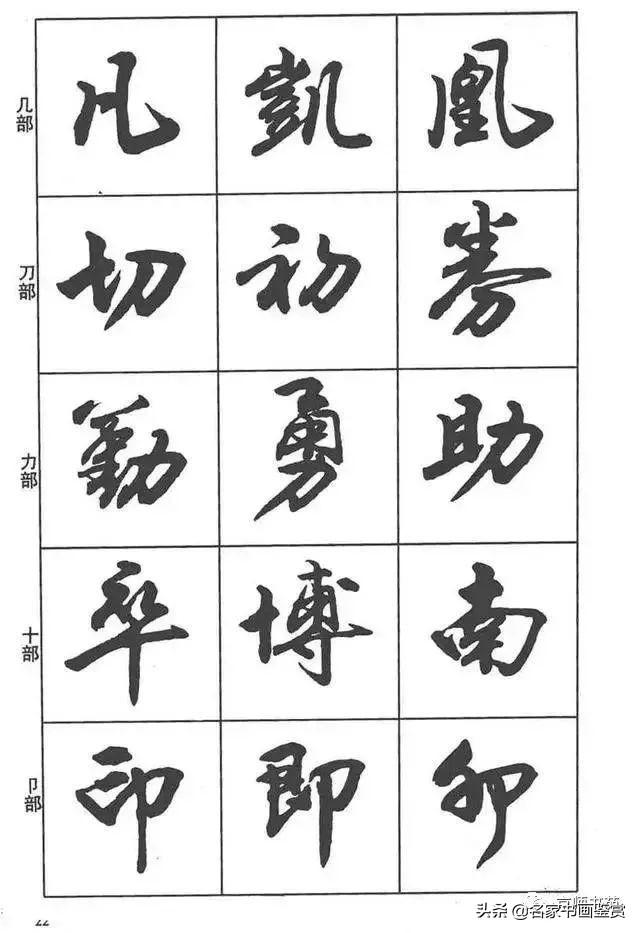 几部 凡 凱 凰
刀部 切 初 券
力部 勤 勇 助
十部 卒 博 南
卩部 印 即 卯
头条 @名家书画鉴赏